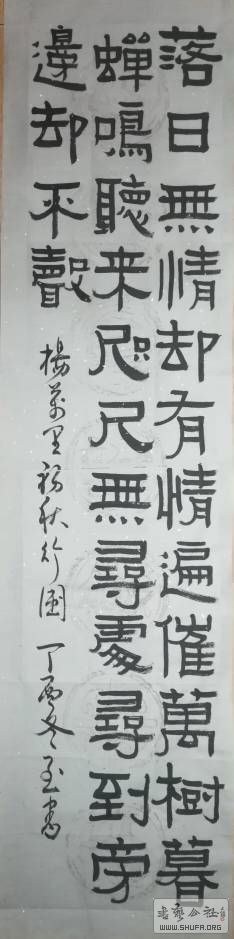 落日無情却有情遍催萬樹暮
蟬鳴聽来咫尺無尋處尋到旁
邊却不聲
楊萬里初秋行圃 丁酉冬至書
書藝公社
WWW.SHUFA.ORG